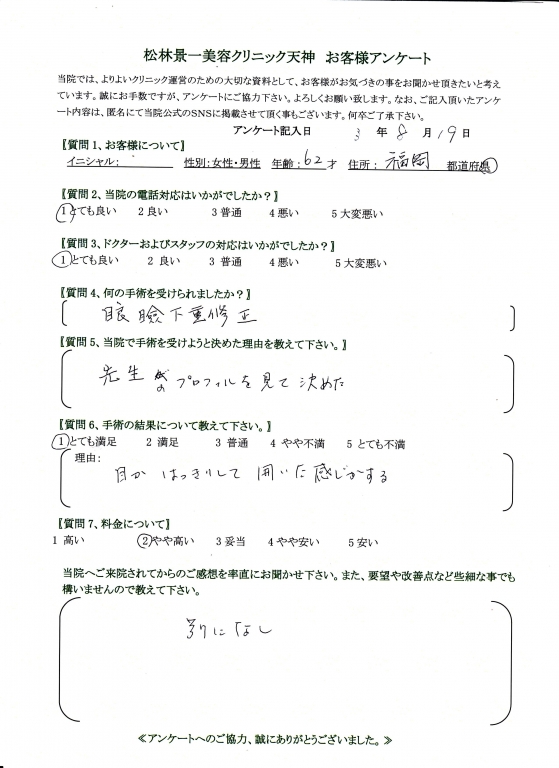 松林景一美容クリニック天神 お客様アンケート
当院では、よりよいクリニック運営のための大切な資料として、お客様がお気づきの事をお聞かせ頂きたいと考え
ています。誠にお手数ですが、アンケートにご協力下さい。よろしくお願い致します。なお、ご記入頂いたアンケ
ート内容は、匿名にて当院公式のSNSに掲載させて頂く事もございます。何卒ご了承下さい。
アンケート記入日 3 年 8 月 19 日
【質問1、お客様について】
イニシャル: 性別:女性・男性 年齢:62才 住所: 福岡 都道府県
【質問2、当院の電話対応はいかがでしたか?】
1とても良い 2 良い 3 普通 4 悪い 5 大変悪い
【質問3、ドクターおよびスタッフの対応はいかがでしたか?】
1とても良い 2 良い 3 普通 4 悪い 5 大変悪い
【質問4、何の手術を受けられましたか?】
眼瞼下垂修正
【質問5、当院で手術を受けようと決めた理由を教えて下さい。】
先生のプロフィルを見て決めた
【質問6、手術の結果について教えて下さい。】
1とても満足 2 満足 3 普通 4 やや不満 5 とても不満
理由:
目がはっきりして開いた感じがする
【質問7、料金について】
1 高い 2やや高い 3 妥当 4 やや安い 5 安い
当院へご来院されてからのご感想を率直にお聞かせ下さい。また、要望や改善点など些細な事でも
構いませんので教えて下さい。
別になし
≪アンケートへのご協力、誠にありがとうございました。≫